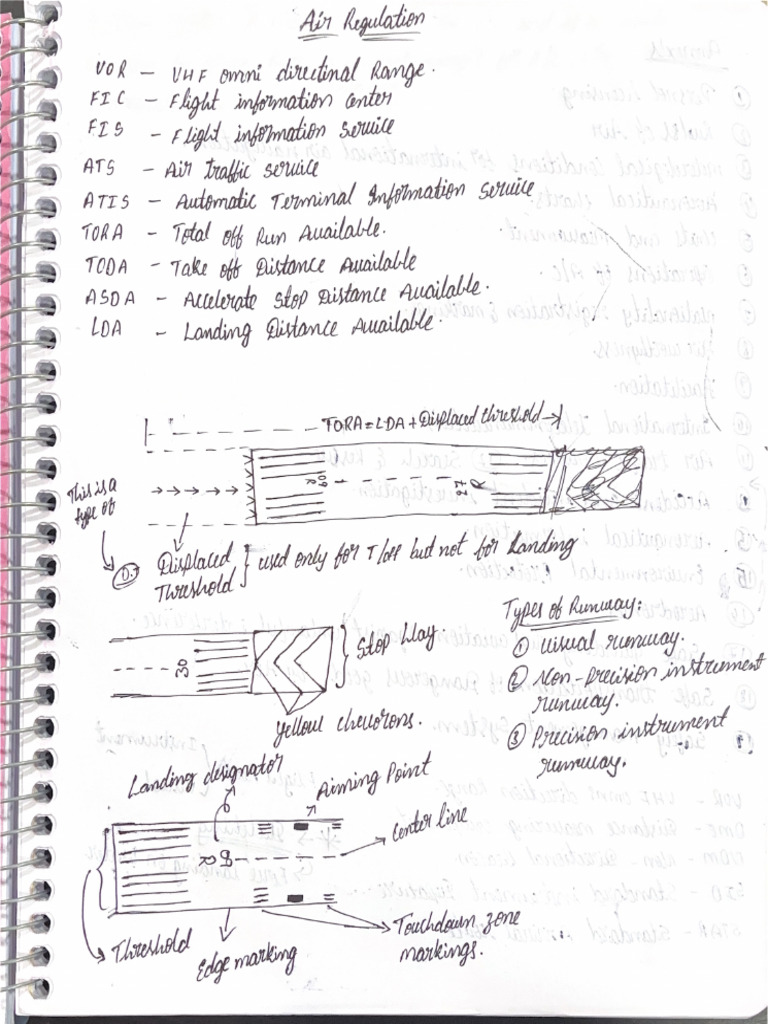 Air Regulation
VOR - VHF omni directinal Range.
FIC - Flight information Center
FIS - Flight information Service
ATS - Air traffic service
ATIS - Automatic Terminal Information Service
TORA - Total off Run Available.
TODA - Take off Distance Available
ASDA - Accelerate Stop Distance Available.
LDA - Landing Distance Available.
TORA = LDA + Displaced threshold
This is a
type of
D.T
Displaced
Threshold } used only for T/off but not for Landing
30
Stop Way.
Yellow chevrons.
Types of Runway:
① Visual runway.
② Non-Precision instrument
runway.
③ Precision instrument
runway.
Landing designator
Aiming Point
Center line
Threshold
Edge marking
Touchdown zone
markings.